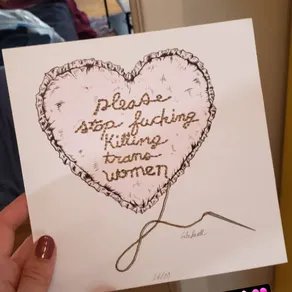 please
stop fucking
killing
trans
women